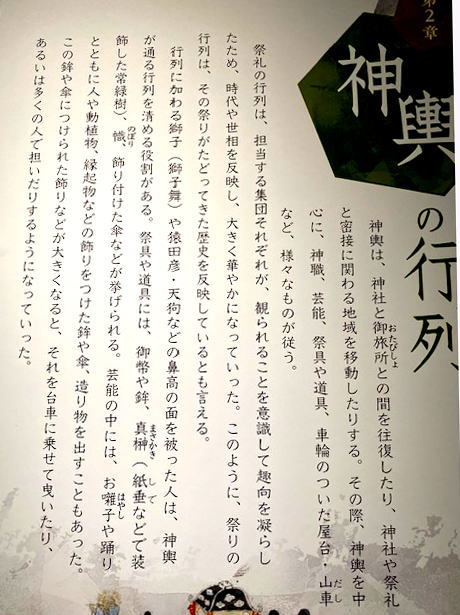 第2章
神輿の行列、
神輿は、神社と御旅所との間を往復したり、神社や祭礼
おたびしょ
と密接に関わる地域を移動したりする。その際、神輿を中
心に、神職、芸能、祭具や道具、車輪のついた屋台・山車
だし
など、様々なものが従う。
祭礼の行列は、担当する集団それぞれが、観られることを意識して趣向を凝らし
たため、時代や世相を反映し、大きく華やかになっていった。このように、祭りの
行列は、その祭りがたどってきた歴史を反映しているとも言える。
行列に加わる獅子（獅子舞）や猿田彦・天狗などの鼻高の面を被った人は、神輿
が通る行列を清める役割がある。祭具や道具には、御幣や鉾、真榊（紙垂などで装
まさかき
して
飾した常緑樹）、幟、飾り付けた傘などが挙げられる。芸能の中には、お囃子や踊り
のぼり
はやし
とともに人や動植物、縁起物などの飾りをつけた鉾や傘、造り物を出すこともあった。
この鉾や傘につけられた飾りなどが大きくなると、それを台車に乗せて曳いたり、
あるいは多くの人で担いだりするようになっていった。